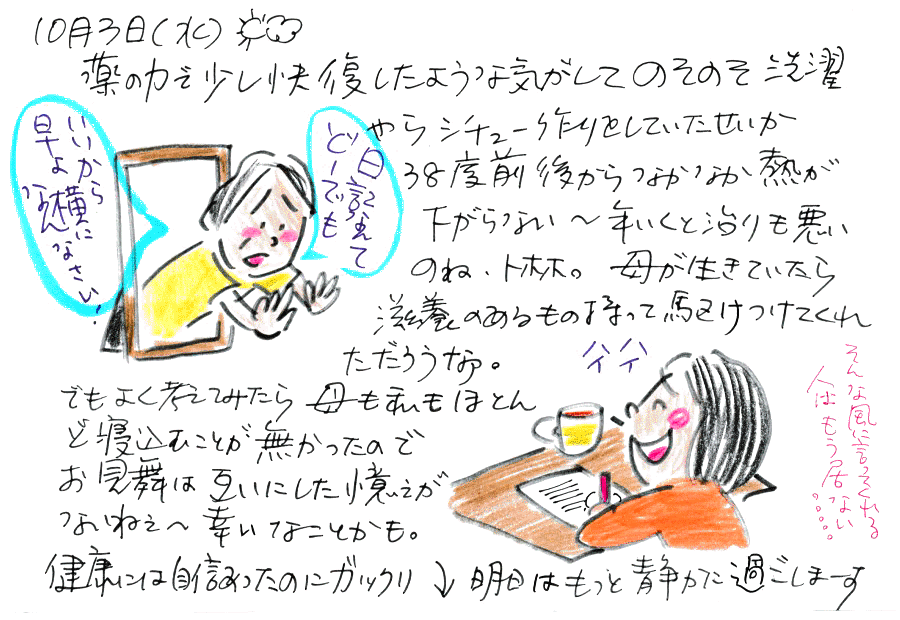 10月3日(水)
薬の力で少し快復したような気がしてのそのそ洗濯
やらシチュー作りをしていたせいか
38度前後からなかなか熱が
下がらない〜年いくと治りも悪い
のね、トホホ。母が生きていたら
滋養のあるもの持って駆けつけてくれ
ただろうなぁ。
でもよく考えてみたら母も私もほとん
ど寝込むことが無かったので
お見舞は互いにした憶えが
ないねぇ〜幸いなことかも。
健康には自信あったのにガックリ↓明日はもっと静かに過ごします
いいから
早よ横に
なんなさい!
日記なんて
どーでも
ハイハイ
そんな風に言ってくれる
人はもう居ない……